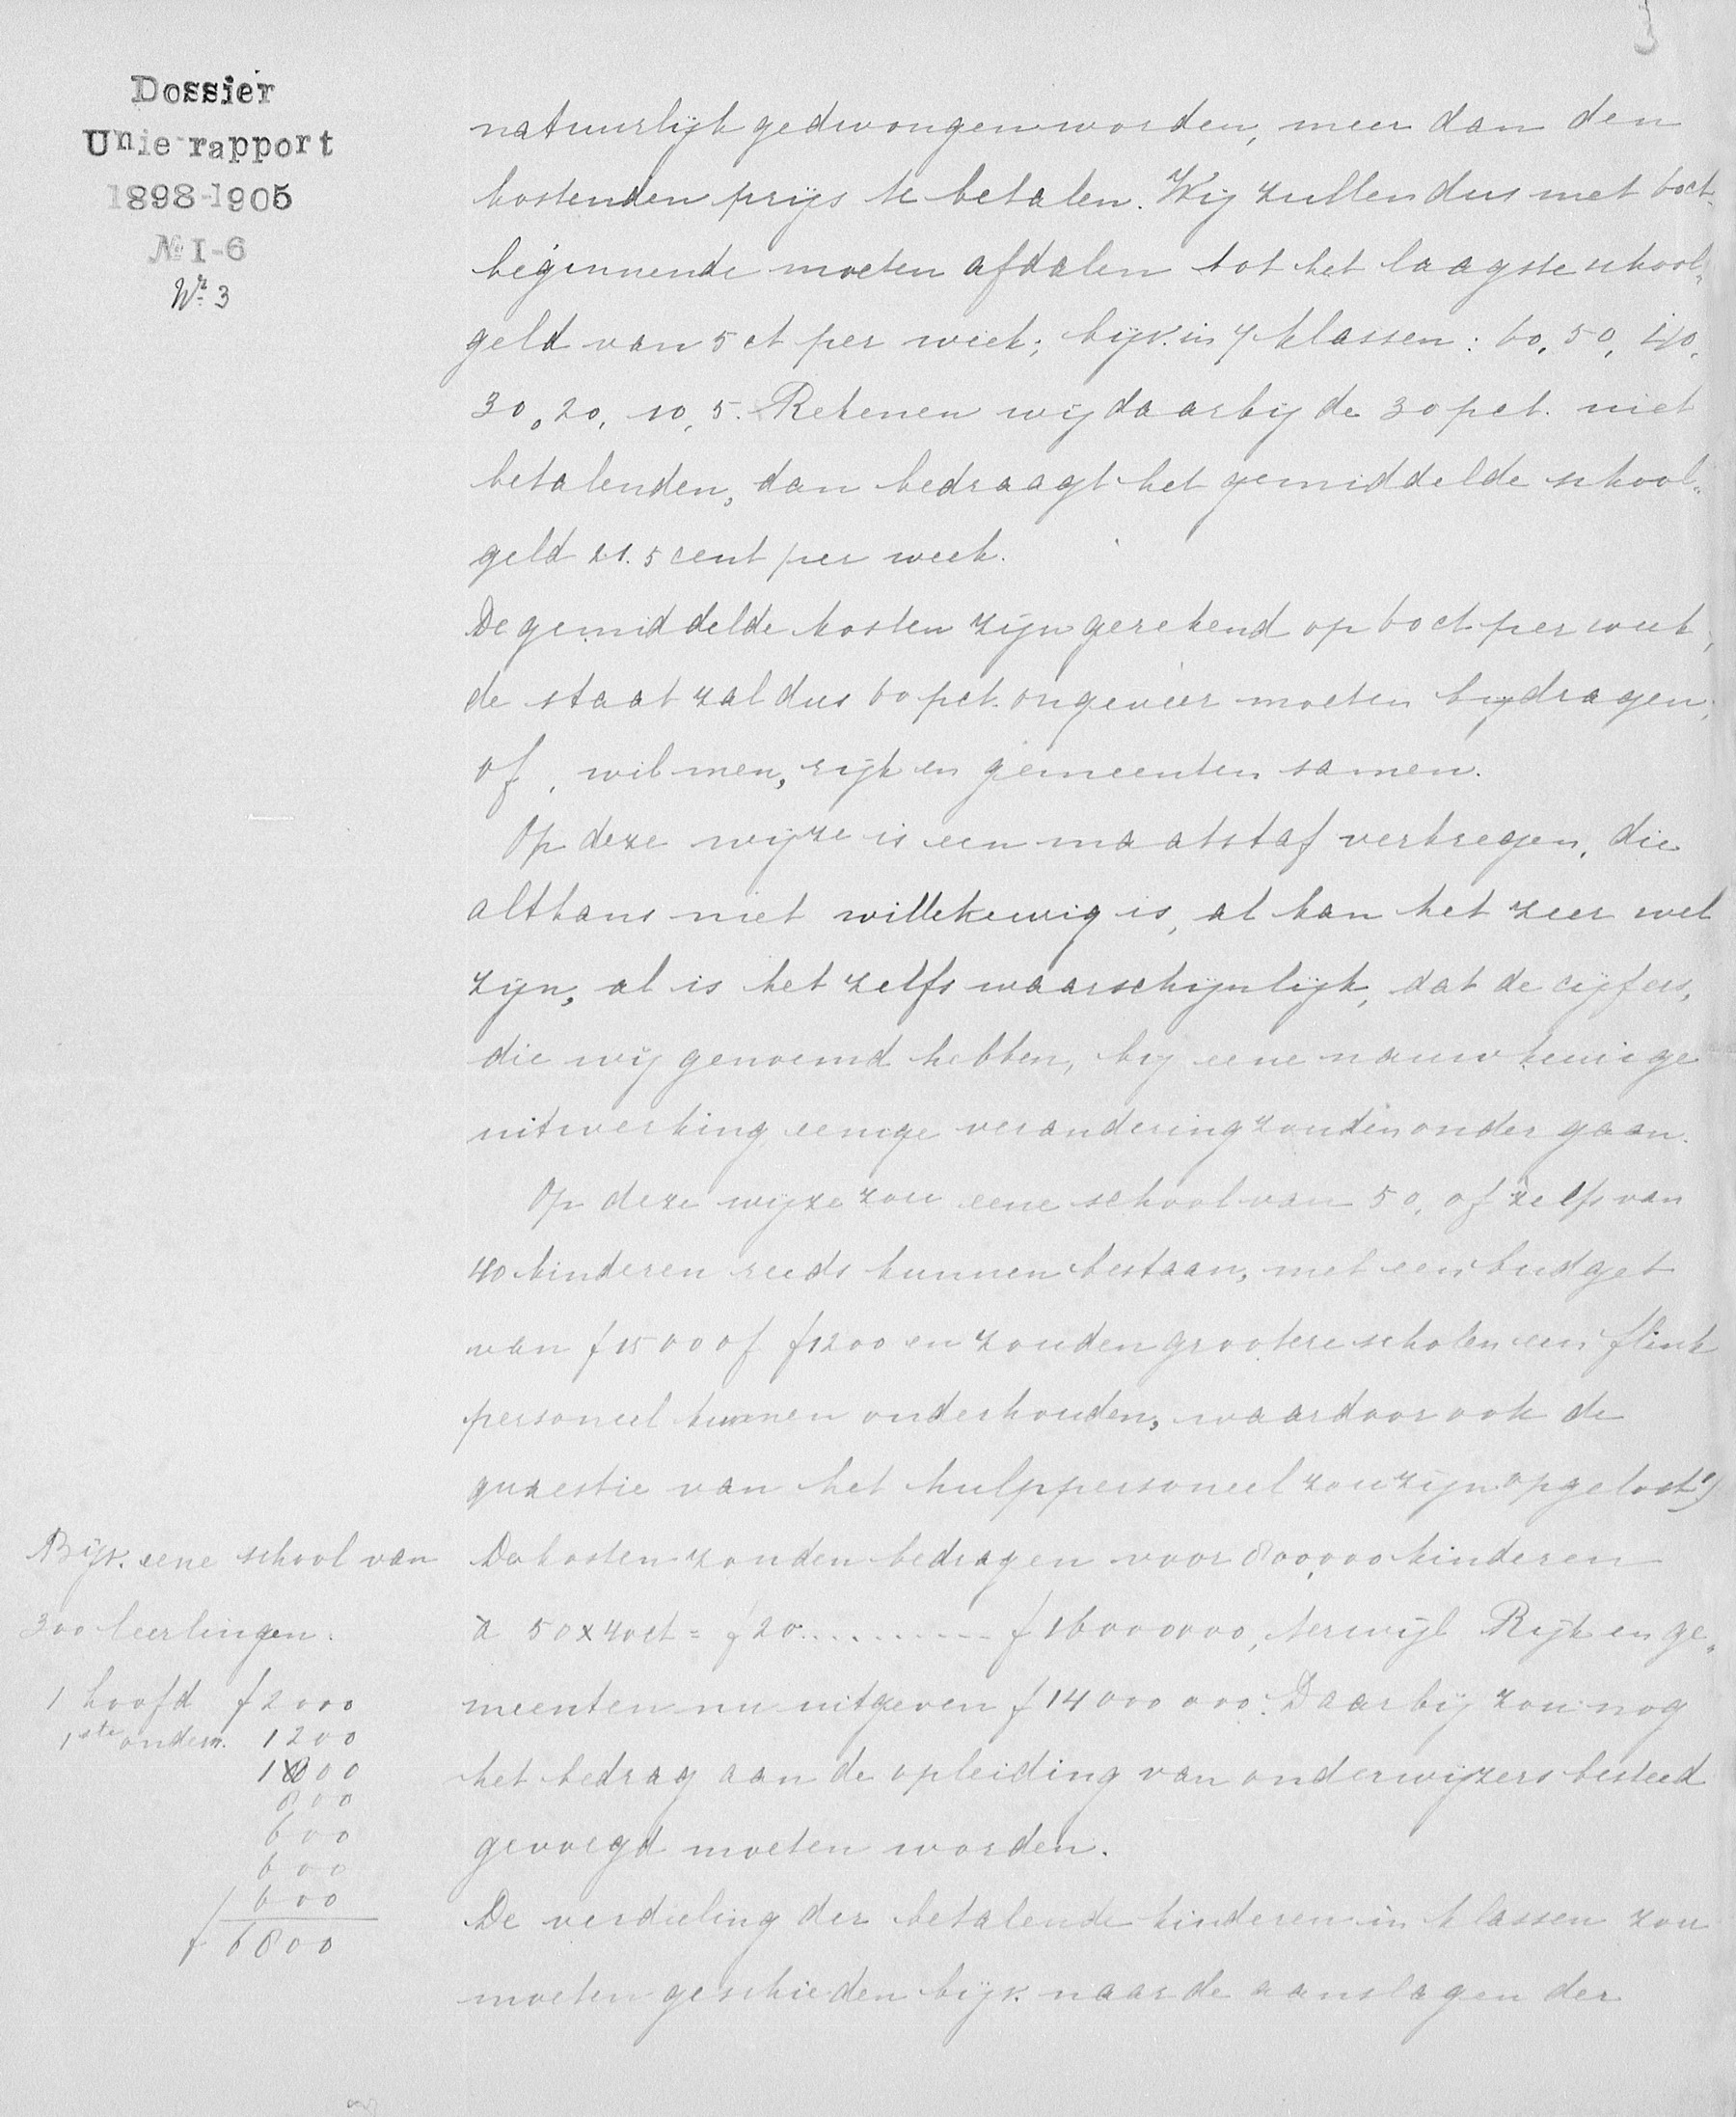 Dossier
Unie-rapport
1898-1905
№ I-6
Nr. 3
natuurlijk gedwongen worden, meer dan den
kostenden prijs te betalen. Wij zullen dus met 60 ct
beginnende moeten afdalen tot het laagste school„
geld van 5 ct per week; bijv. in 7 klassen: 60, 50, 40,
30, 20, 10, 5. Rekenen wij daarbij de 30 pct. niet
betalenden, dan bedraagt het gemiddelde school„
geld 21.5 cent per week.
De gemiddelde kosten zijn gerekend op 60 ct per week,
de staat zal dus 60 pct. ongeveer moeten bijdragen;
of, wil men, rijk en gemeenten samen.
Op deze wijze is een maatstaf verkregen, die
althans niet willekeurig is, al kan het zeer wel
zijn, al is het zelfs waarschijnlijk, dat de cijfers,
die wij genoemd hebben, bij eene nauwkeurige
uitwerking eenige verandering zouden ondergaan.
Op deze wijze zou eene school van 50, of zelfs van
40 kinderen reeds kunnen bestaan, met een budget
van f 1500 of f 1200 en zouden grootere scholen een flink
personeel kunnen onderhouden, waardoor ook de
quaestie van het hulppersoneel zou zijn opgelost.*)
De kosten zouden bedragen voor 800,000 kinderen
à 50 x 40 ct = f 20.......... f 16000000, terwijl Rijk en ge„
meenten nu uitgeven f 14 000 000. Daarbij zou nog
het bedrag aan de opleiding van onderwijzers besteed
gevoegd moeten worden.
De verdeeling der betalende kinderen in klassen zou
moeten geschieden bijv. naar de aanslagen der
Bijv. eene school van
300 leerlingen.
1 hoofd f 2000
1ste onderw. 1200
1000
800
600
600
600
f 6800